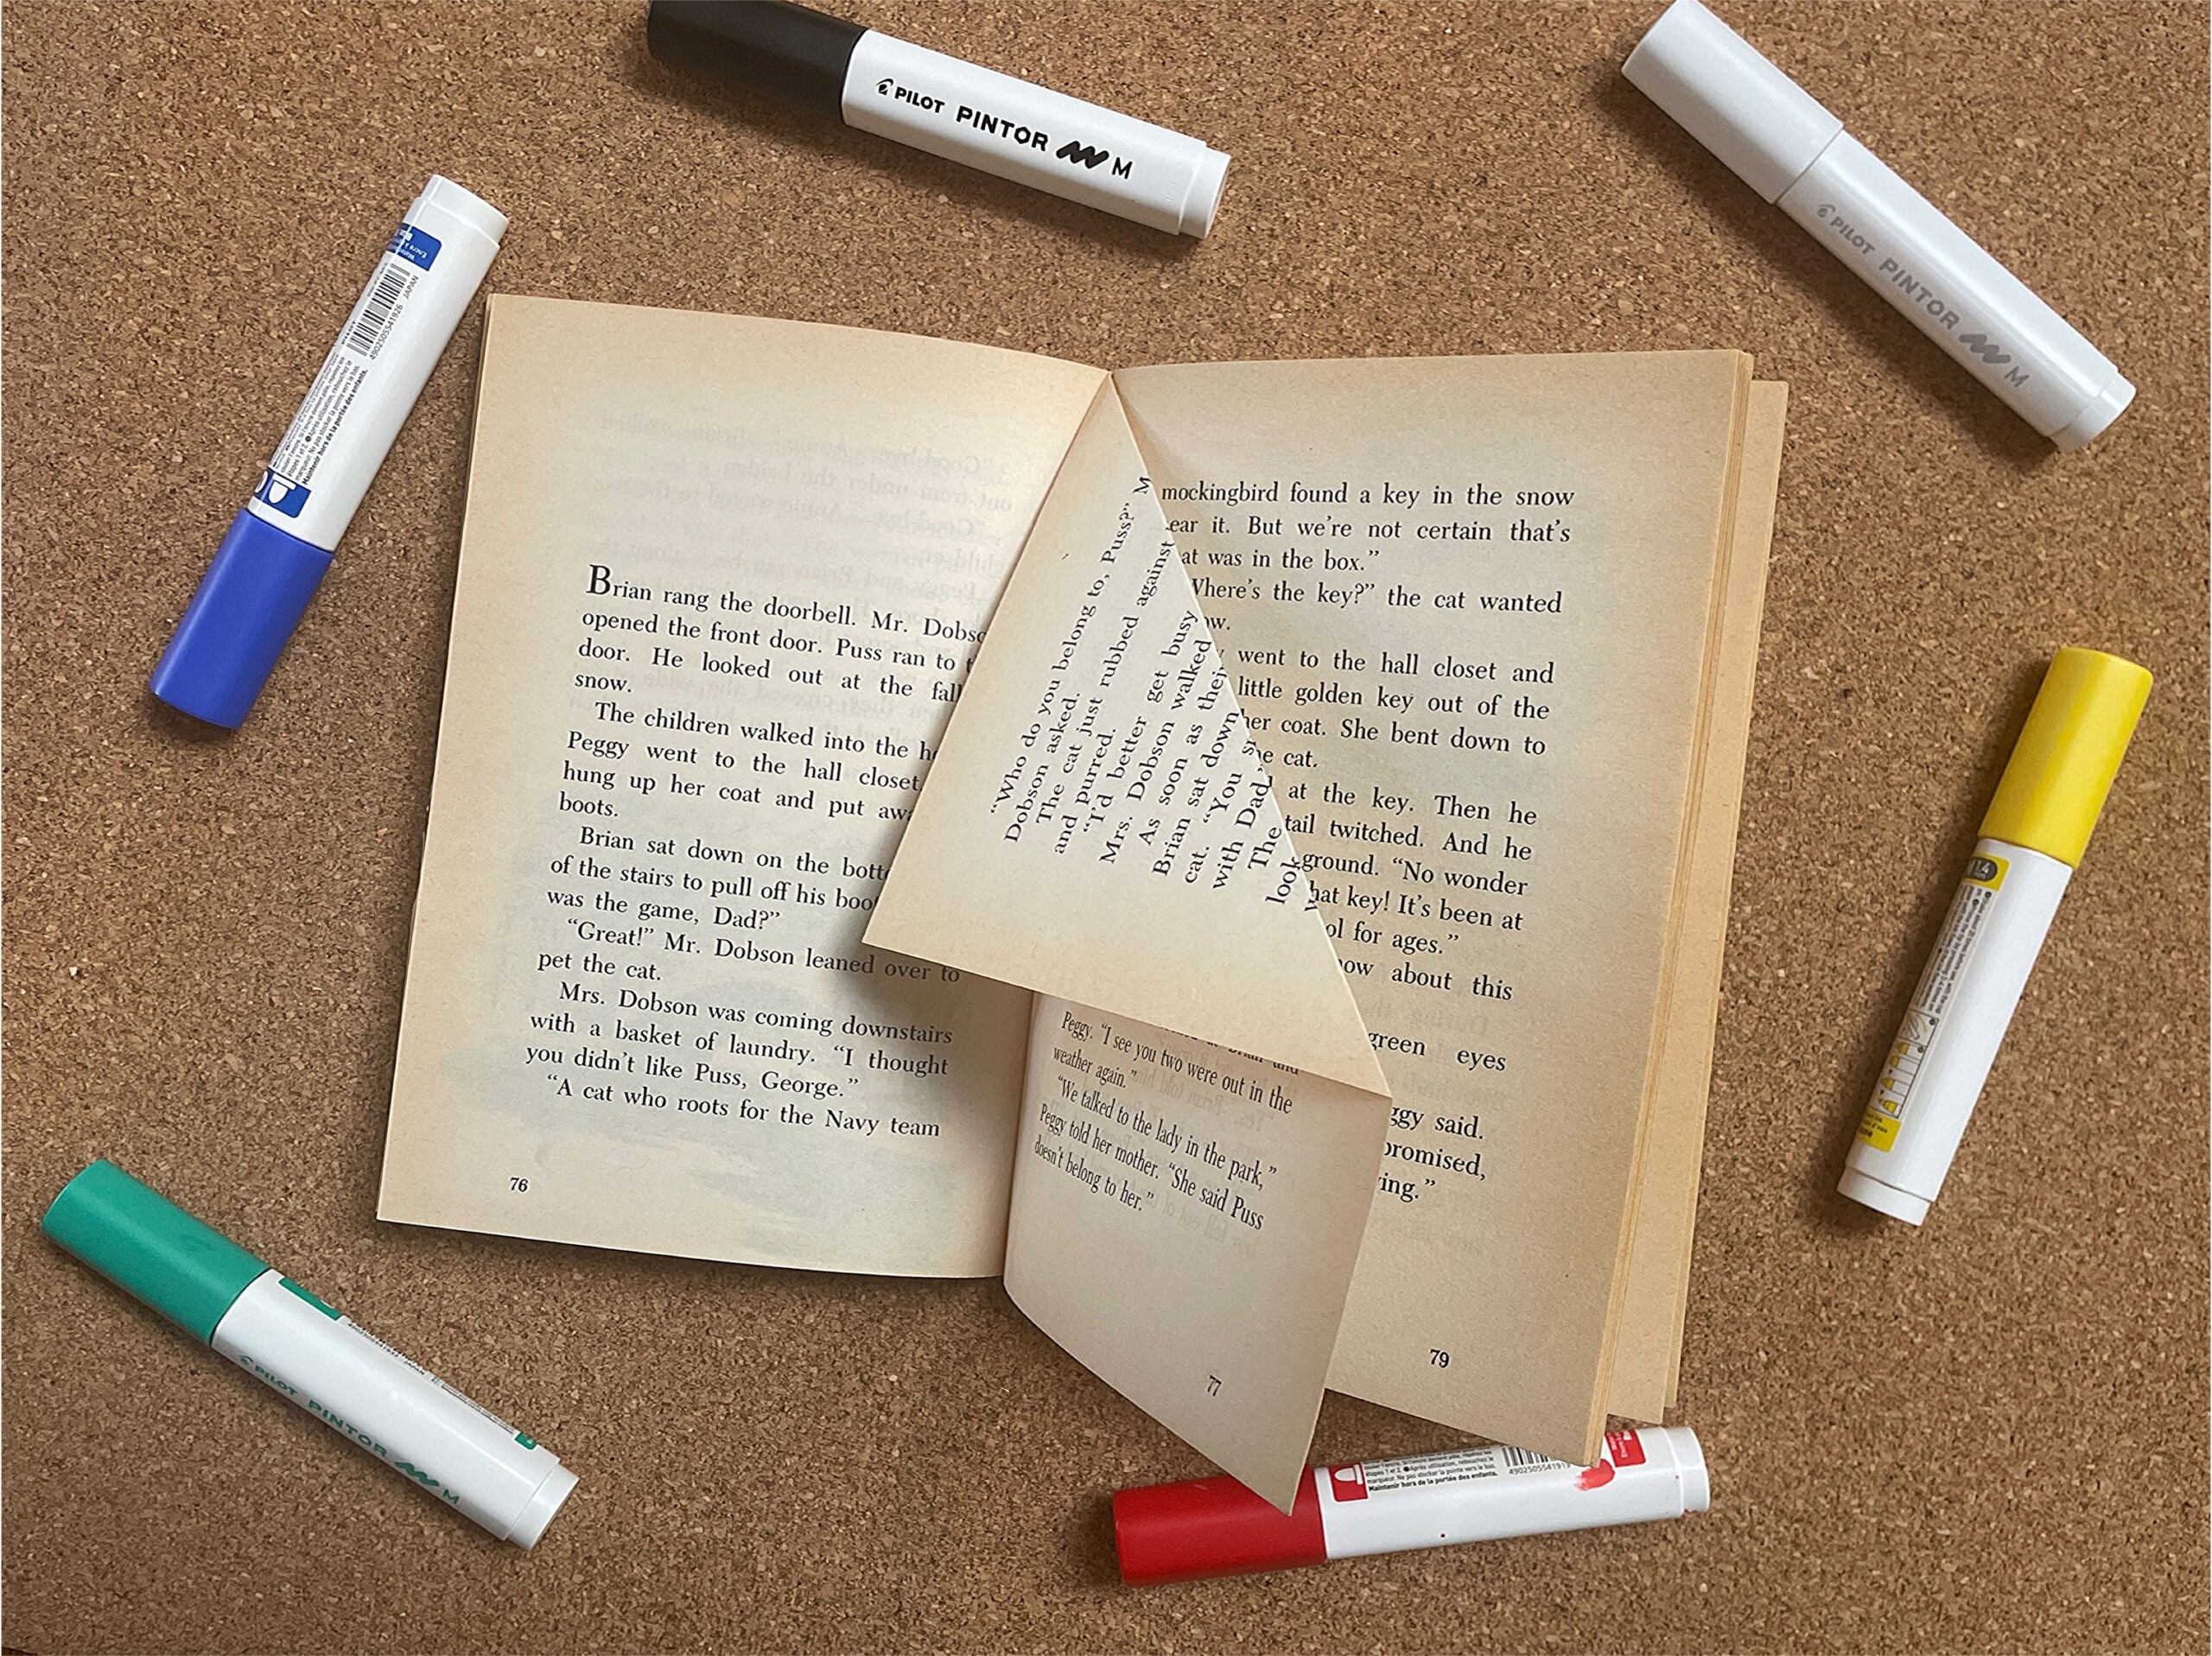 PILOT PINTOR M
PILOT PINTOR M
JAPAN
4902505541926
Maintenir hors de la portée des enfants.
Brian rang the doorbell. Mr.
opened the front door. Puss ran to
door. He looked out at the
snow.
The children walked into the
Peggy went to the hall closet
hung up her coat and put
boots.
Brian sat down on the
of the stairs to pull off his
was the game, Dad?”
“Great!” Mr. Dobson leaned over to
pet the cat.
Mrs. Dobson was coming downstairs
with a basket of laundry. “I thought
you didn’t like Puss, George.”
“A cat who roots for the Navy team
76
“Who do you belong to, Puss?” M
Dobson asked.
The cat just rubbed against
and purred.
“I’d better get busy
Mrs. Dobson walked
As soon as their
Brian sat down
cat. “You
with Dad,
The
look
Peggy. “I see you two were out in the
weather again.”
“We talked to the lady in the park,”
Peggy told her mother. “She said Puss
doesn’t belong to her.”
77
mockingbird found a key in the snow
ear it. But we’re not certain that’s
at was in the box.”
Where’s the key?” the cat wanted
ow.
went to the hall closet and
little golden key out of the
her coat. She bent down to
he cat.
at the key. Then he
tail twitched. And he
ground. “No wonder
hat key! It’s been at
ol for ages.”
ow about this
green eyes
ggy said.
promised,
ing.”
79
PILOT PINTOR M
Maintenir hors de la portée des enfants.